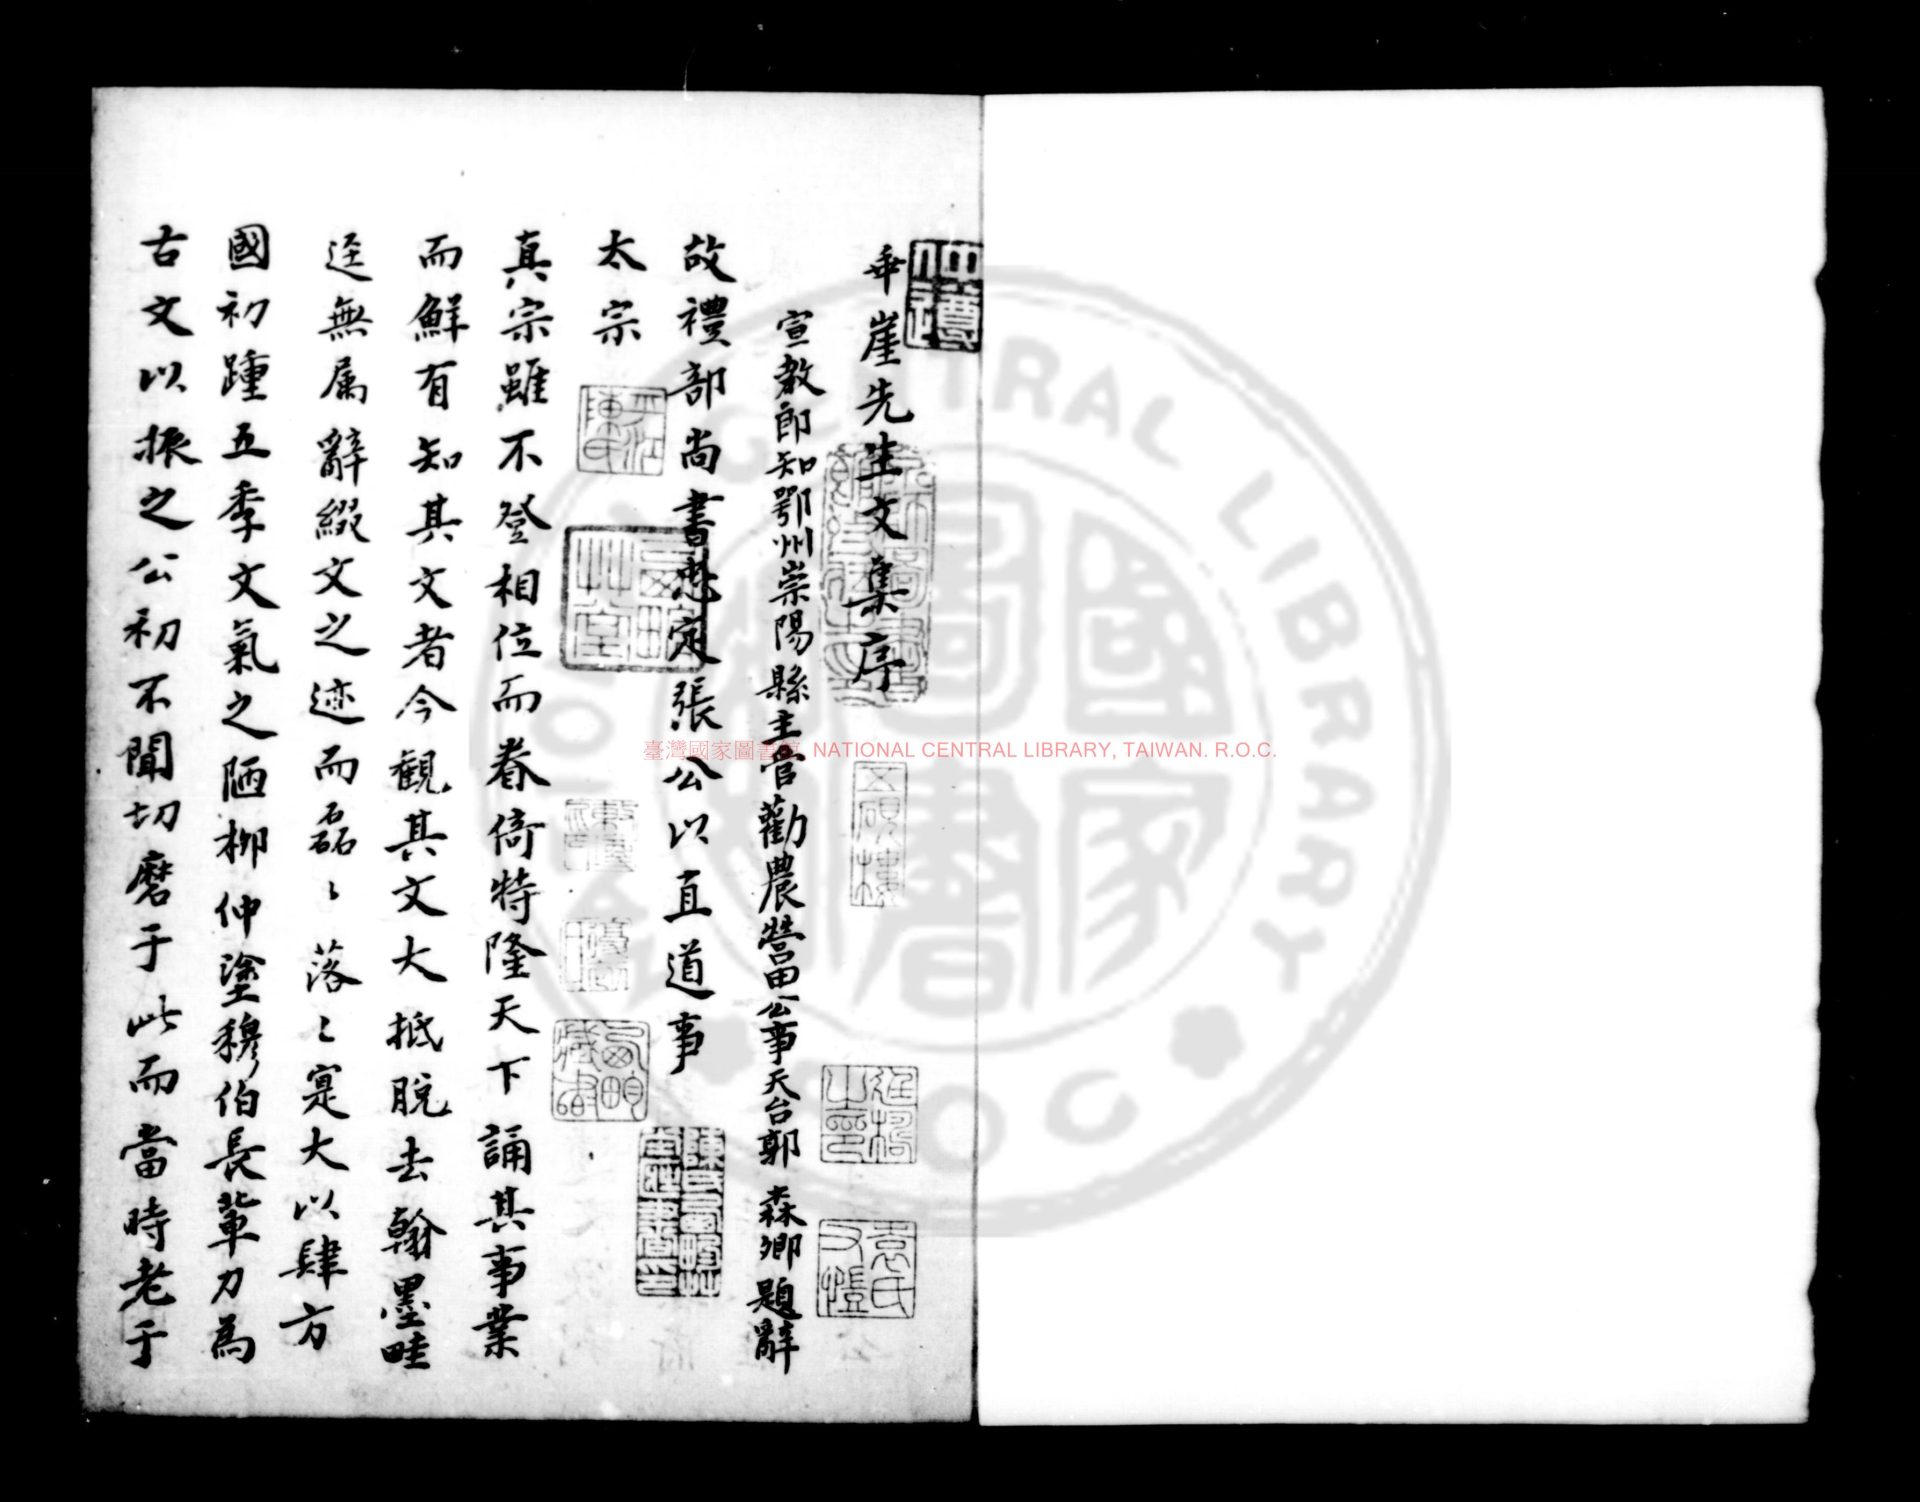 乖崖先生文集序
宣教郎知鄂州崇陽縣主管勸農營田公事天台郭 森卿題辭
故禮部尚書忠定張公以直道事
太宗
真宗雖不登相位而眷倚特隆天下誦其事業
而鮮有知其文者今觀其文大抵脫去翰墨畦
逕無属辭綴文之迹而磊〻落〻寔大以肆方
國初踵五季文氣之陋柳仲塗穆伯長輩力為
古文以振之公初不聞切磨于此而當時老于
臺灣國家圖書館 NATIONAL CENTRAL LIBRARY, TAIWAN. R.O.C.
五硯樓
袁氏又愷